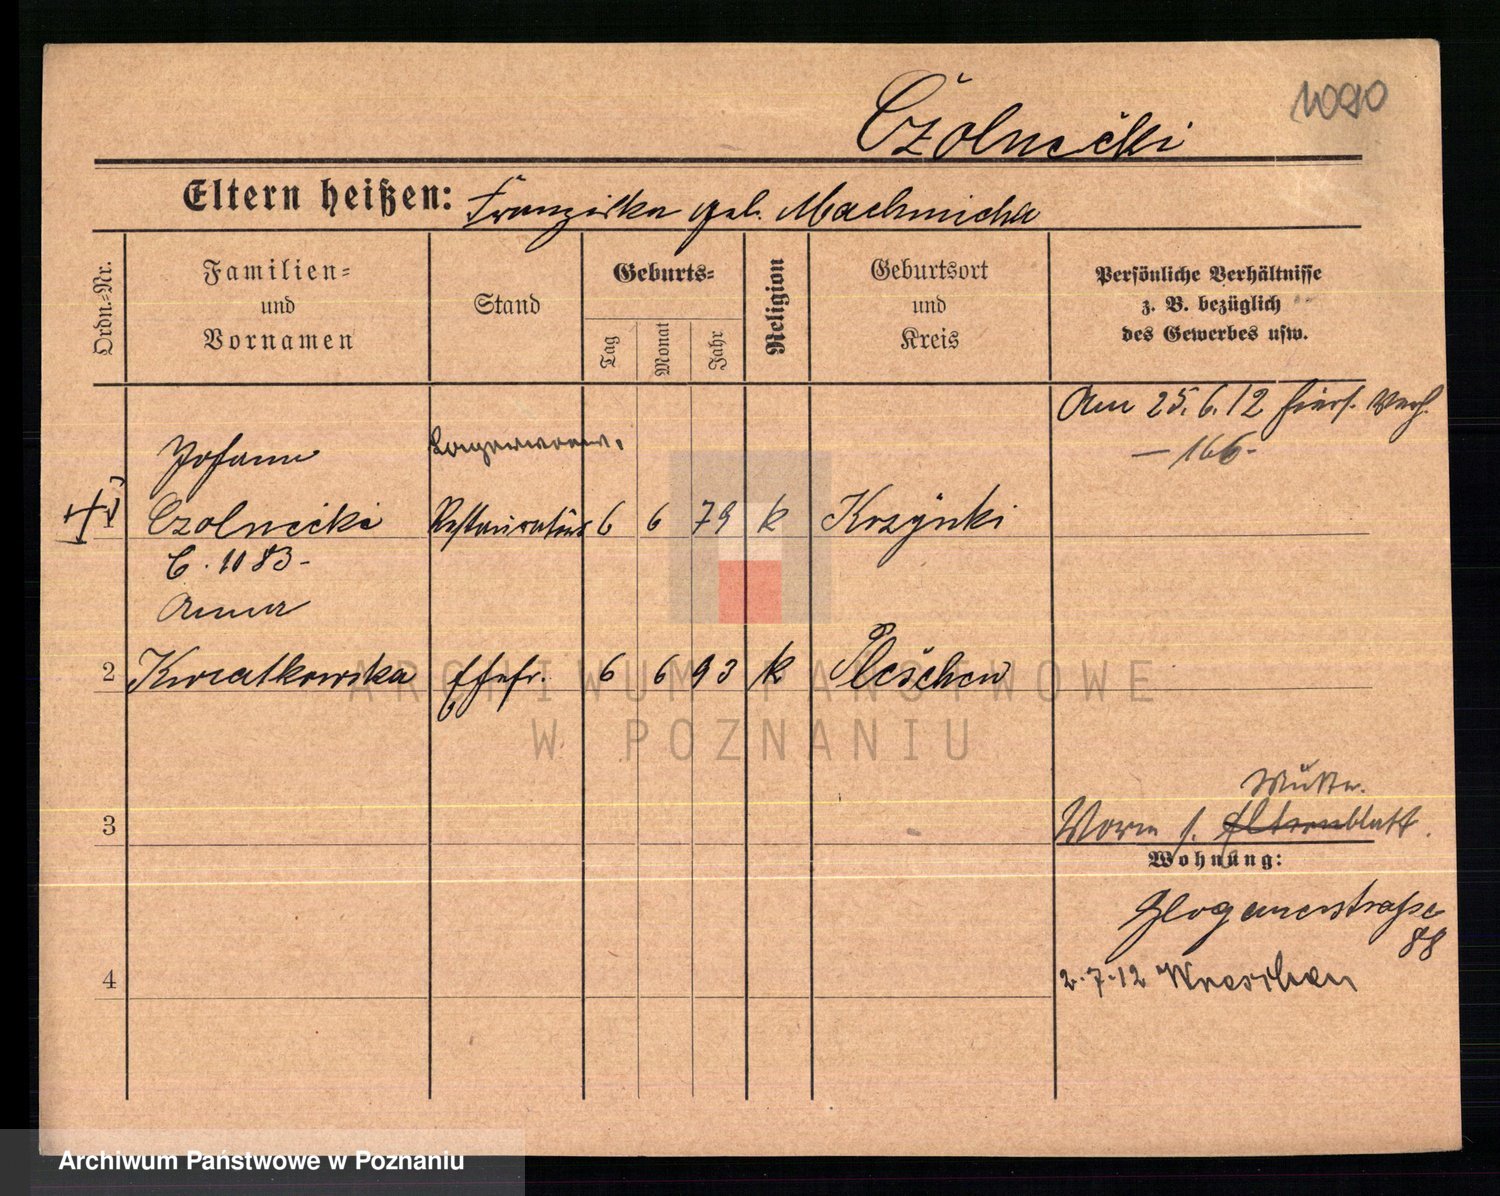 1090
Czolnecki
Eltern heißen: Franziska geb. Machnicka
Ordn.-Nr.
Familien-
und
Vornamen
Stand
Geburts-
Tag
Monat
Jahr
Religion
Geburtsort
und
Kreis
Persönliche Verhältnisse
z. B. bezüglich
des Gewerbes usw.
Am 25.6.12 hiers. Verh.
- 166 -
Johann
Czolnecki Restaurateur 6 6 79 k Krzynki
C. 1083-
Anna
2 Kwiatkowska Ehefr. 6 6 93 k Pleschen
3
Mutter
Vorm s. Elternblatt.
Wohnung:
Glogauerstraße
88
4
2.7.12 Wreschen
ARCHIWUM PAŃSTWOWE
W POZNANIU
Archiwum Państwowe w Poznaniu